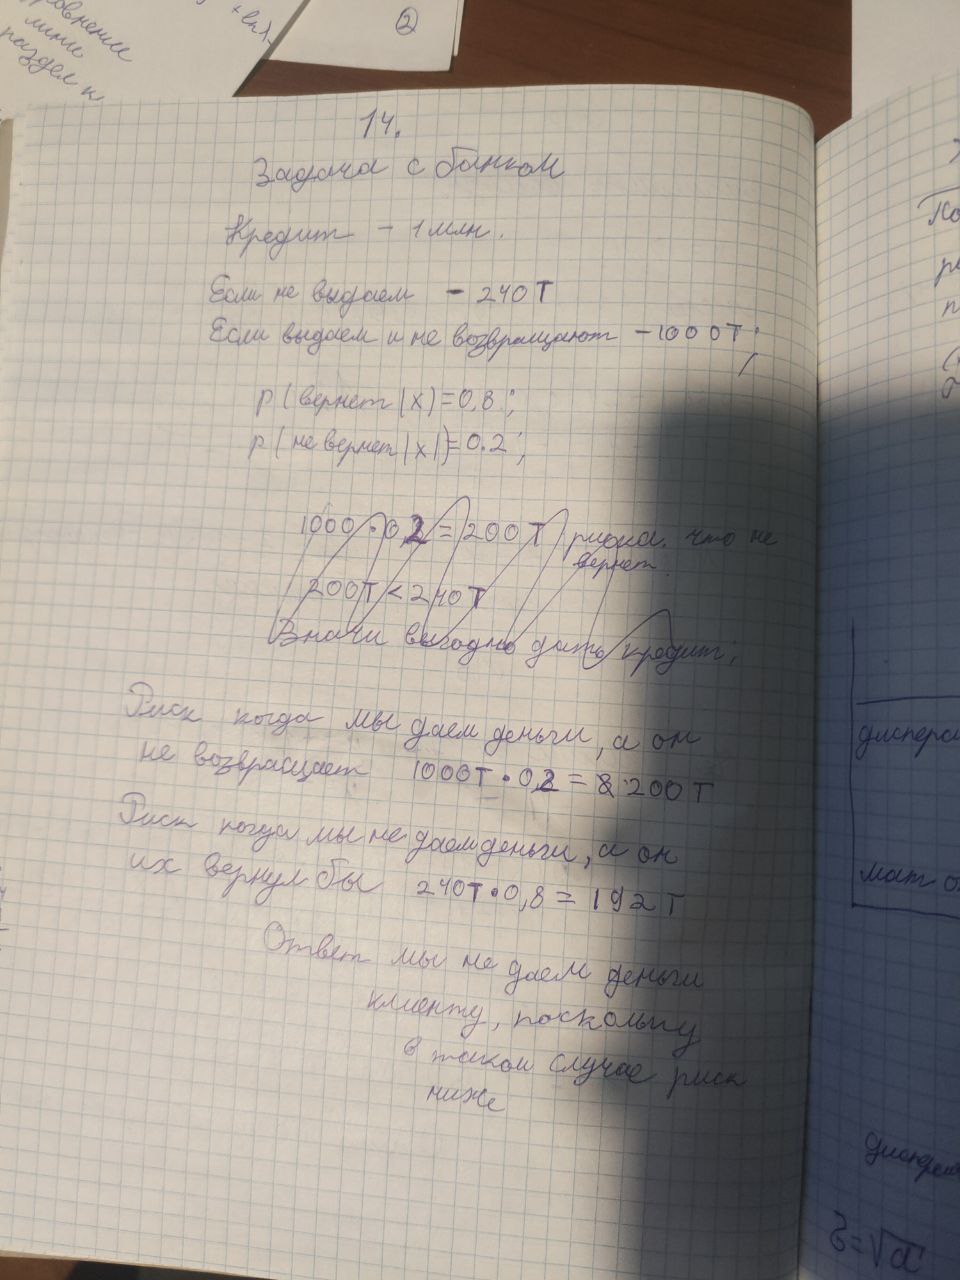 уравнение
линии
раздел к
+ ln λ
2
14.
Задача с банком
Кредит - 1 млн.
Если не выдаем - 240 Т
Если выдаем и не возвращают - 1000Т;
p(вернет|x)=0,8;
p(не вернет|x|)=0.2;
1000 · 0,2 = 200 Т риска. что не
вернет.
200Т < 240Т
Значи выгодно дать кредит;
Риск когда мы даем деньги, а он
не возвращает 1000Т · 0,2 = 200 Т
Риск когда мы не даем деньги, а он
их вернул бы 240Т · 0,8 = 192 Т
Ответ мы не даем деньги
клиенту, поскольку
в таком случае риск
ниже